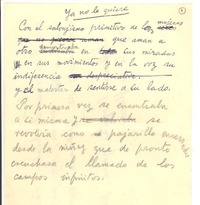 Ya no la quiere
Con el salvajismo primitivo de las mujeres
que aman a
otro en sus miradas
y en sus movimientos y en la voz su
indiferencia
y el malestar de sentirse a tu lado.
Por primera vez se encontraba
a sí misma y
revolvía como pajarillo
desde la niñez que de pronto
escuchase el llamado de los
campos infinitos.